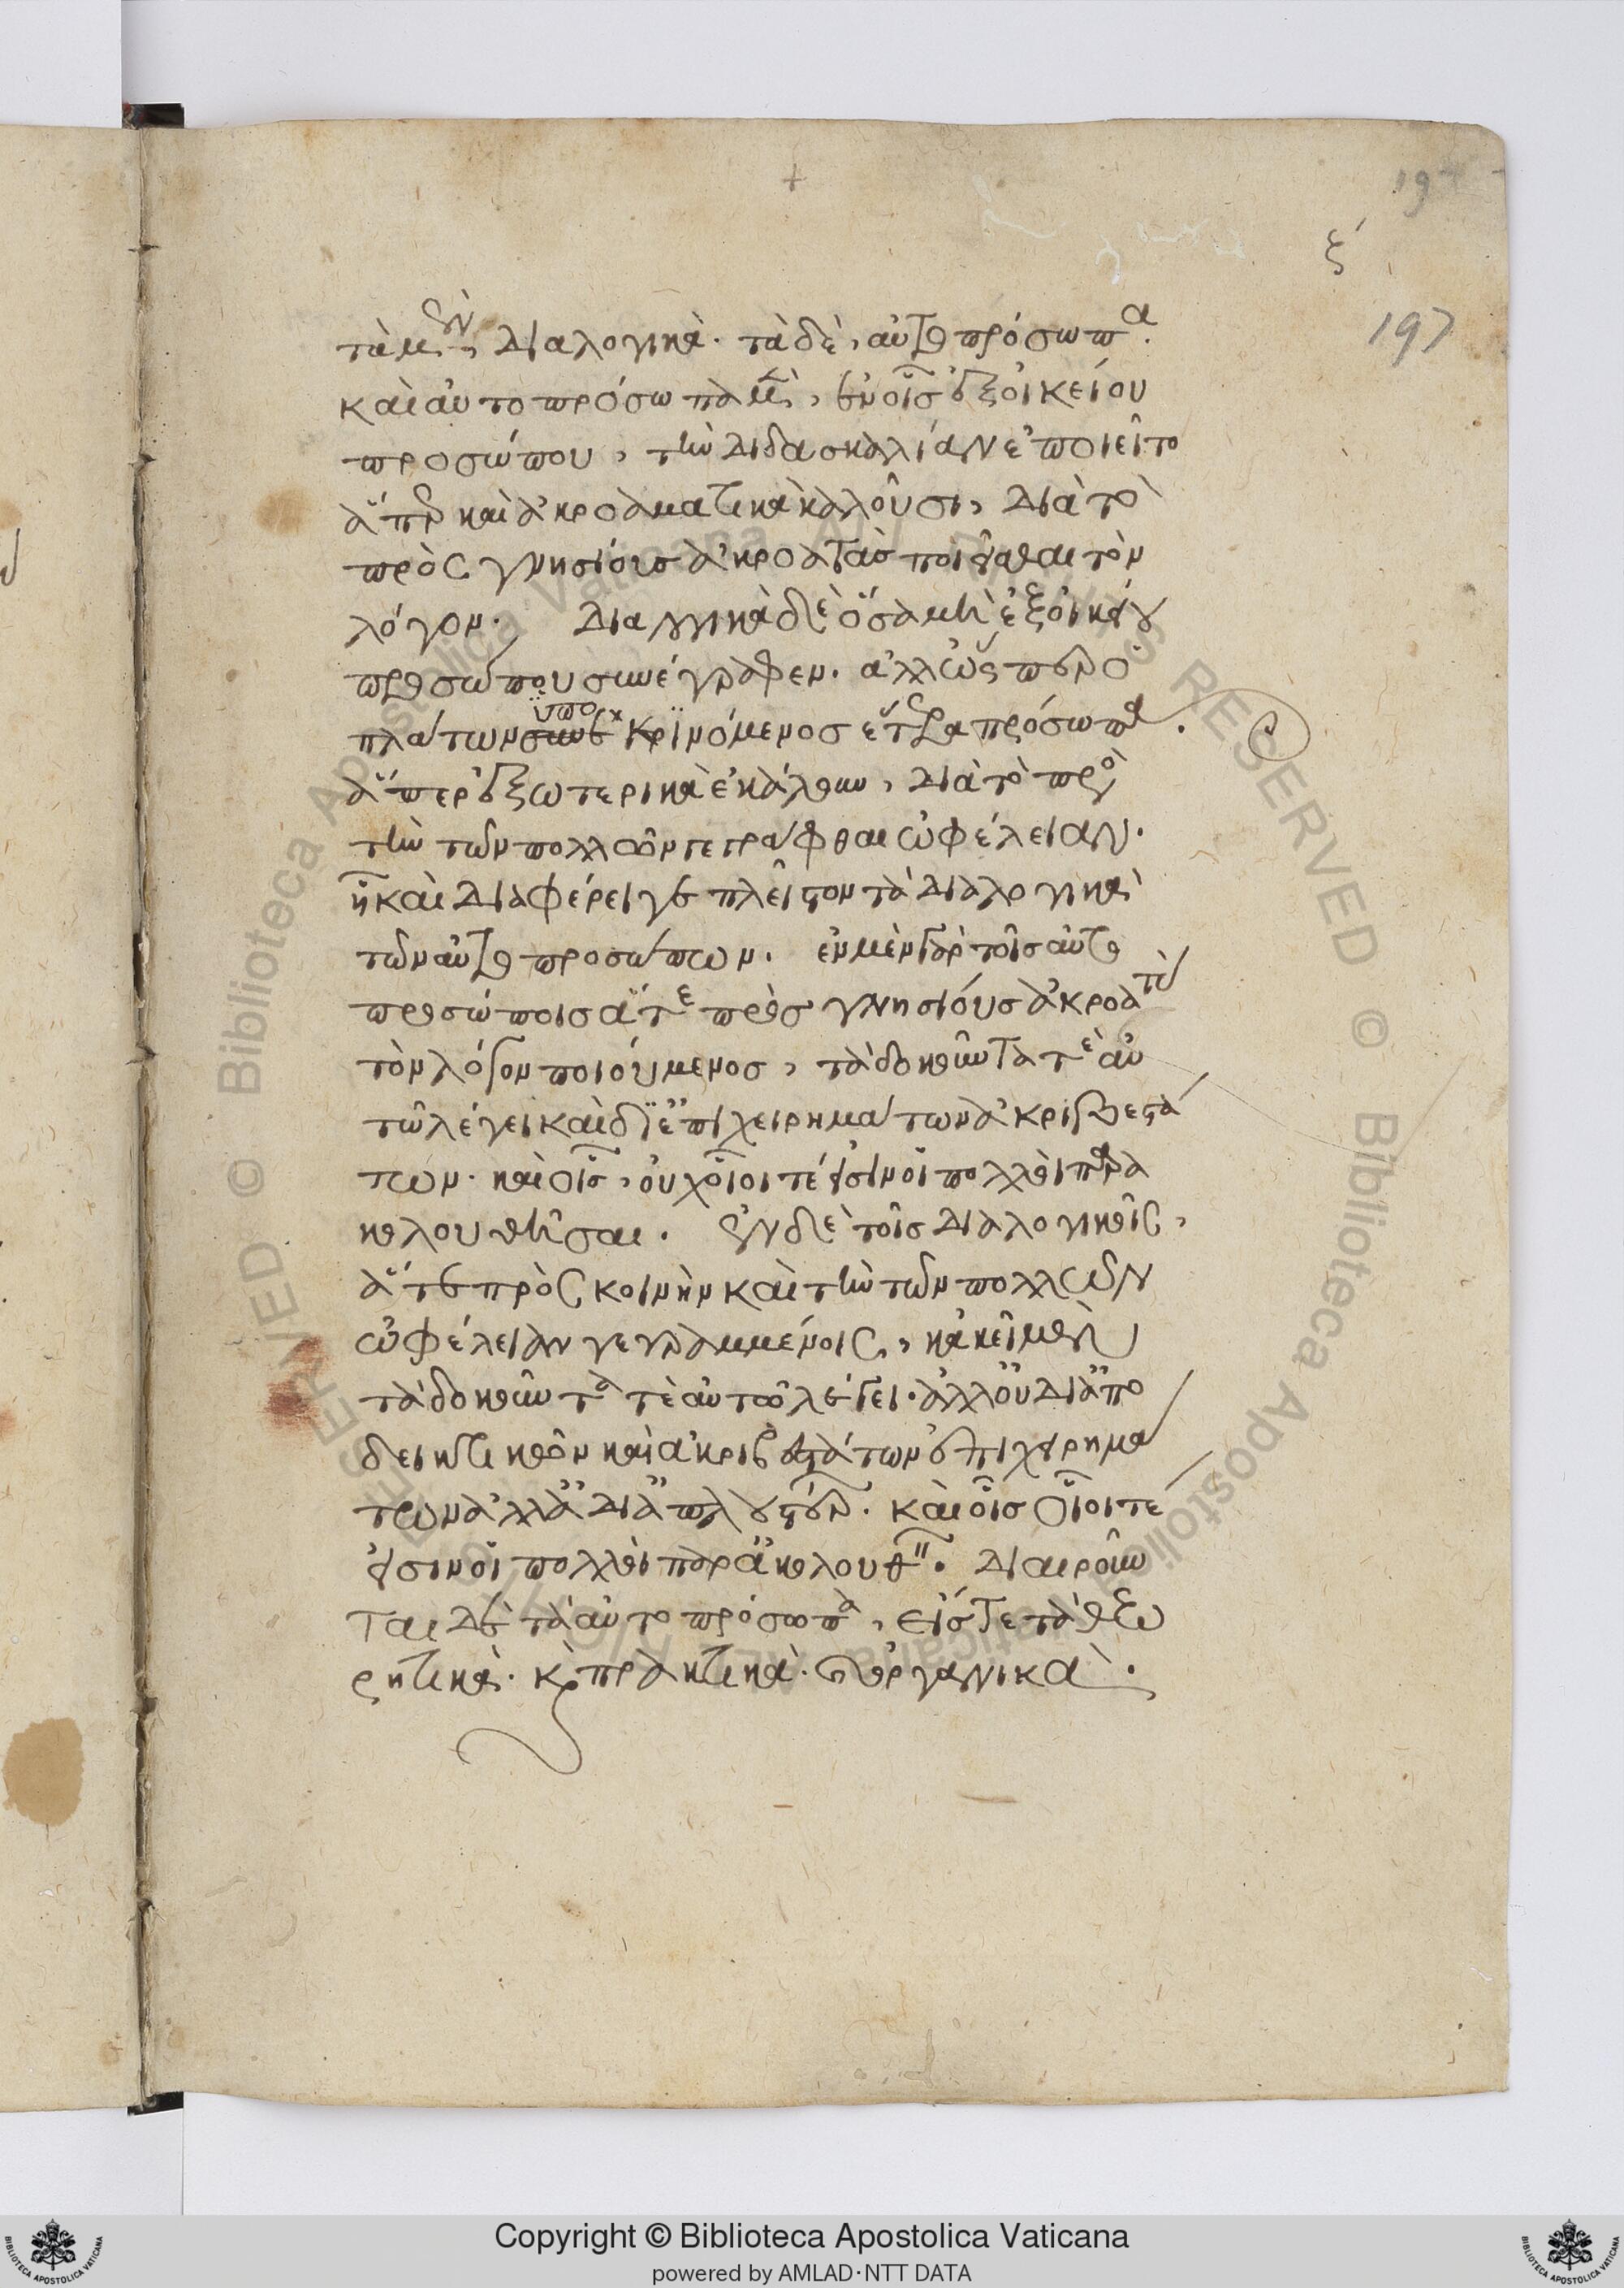 197
ξ´
197
τὰ μὲν, διαλογικὰ· τὰ δὲ, αὐτοπρόσωπα·
καὶ αὐτοπρόσωπα μὲν, ἐν οἷς ἐξ οἰκείου
προσώπου, τὴν διδασκαλίαν ἐποιεῖτο
ἅπερ καὶ ἀκροαματικὰ καλοῦσι, διὰ τὸ
πρὸς γνησίους ἀκροατὰς ποιεῖσθαι τὸν
λόγον. διαλογικὰ δὲ ὅσα μὴ ἐξ οἰκείου
προσώπου συνέγραψεν. ἀλλ' ὥσπερ ὁ
πλάτων ὑποκρινόμενος ἕτερα πρόσωπα.
ἅπερ ἐξωτερικὰ ἐκάλουν, διὰ τὸ πρὸς
τὴν τῶν πολλῶν γεγράφθαι ὠφέλειαν.
ἢ καὶ διαφέρει γε πλεῖστον τὰ διαλογικὰ
τῶν αὐτοπροσώπων. ἐν μὲν γὰρ τοῖς αὐτο
προσώποις ἅτε πρὸς γνησίους ἀκροατὰς
τὸν λόγον ποιούμενος, τὰ δοκοῦντά τε αὐ
τῶ λέγει καὶ δι' ἐπιχειρημάτων ἀκριβεστά
των. καὶ οἷς, οὐχ οἷοι τέ εἰσιν οἱ πολλοὶ παρα
κολουθῆσαι. ἐν δὲ τοῖς διαλογικοῖς,
ἅτε πρὸς κοινὴν καὶ τὴν τῶν πολλῶν
ὠφέλειαν γεγραμμένοις, κἀκεῖ μὲν
τὰ δοκοῦντα τὲ αὐτῶ λέγει. ἀλλ' οὐ δι' ἀπο
δεικτικῶν καὶ ἀκριβεστάτων ἐπιχειρημά
των ἀλλὰ δι' ἁπλουστέρων. καὶ οἷς οἷοι τέ
εἰσιν οἱ πολλοὶ παρακολουθεῖν. διαιροῦν
ται δὲ τὰ αὐτοπρόσωπα, εἴς τε τὰ θεω
ρητικὰ. καὶ πρακτικὰ. καὶ ὀργανικὰ.
© Biblioteca Apostolica Vaticana ALL RIGHTS RESERVED
Copyright © Biblioteca Apostolica Vaticana
powered by AMLAD·NTT DATA